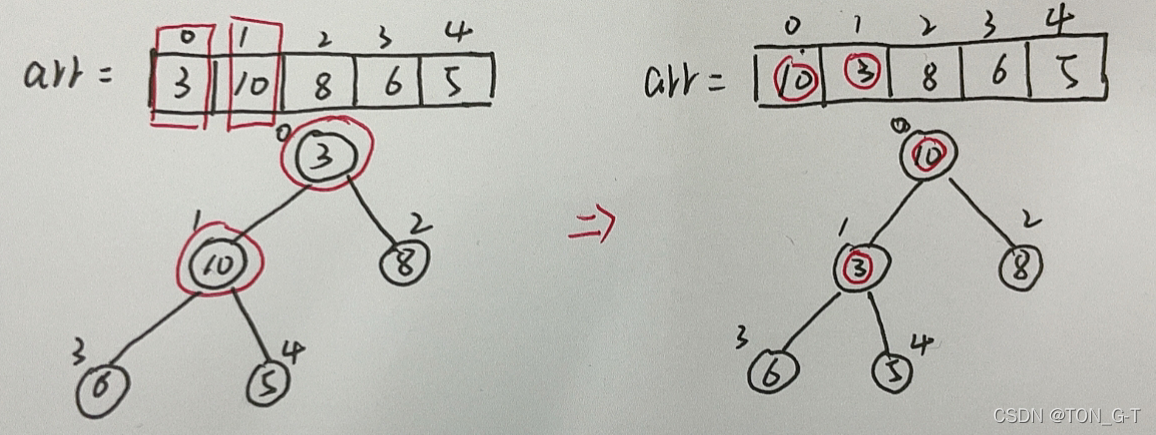 0 1 2 3 4
arr = 3 10 8 6 5
0
3
1 2
10 8
3 4
6 5
⇒
0 1 2 3 4
arr = 10 3 8 6 5
0
10
1 2
3 8
3 4
6 5
CSDN @TON_G-T